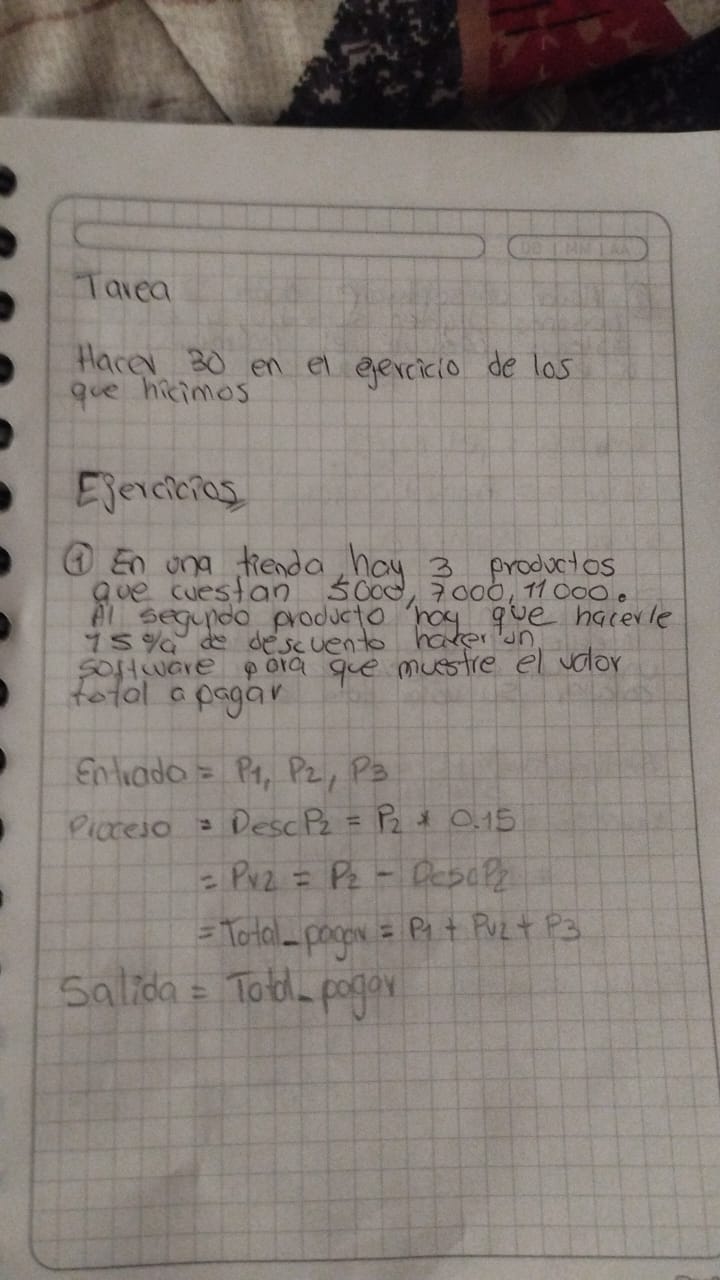 DD | MM | AA
Tarea
Hacer 30 en el ejercicio de los
que hicimos
Ejercicios
① En una tienda hay 3 productos
que cuestan 5000, 7000, 11000.
Al segundo producto hay que hacerle
15% de descuento hacer un
software para que muestre el valor
total a pagar
Entrada = P1, P2, P3
Proceso = DescP2 = P2 * 0.15
= Pv2 = P2 - DescP2
= Total_pagar = P1 + Pv2 + P3
Salida = Total_pagar